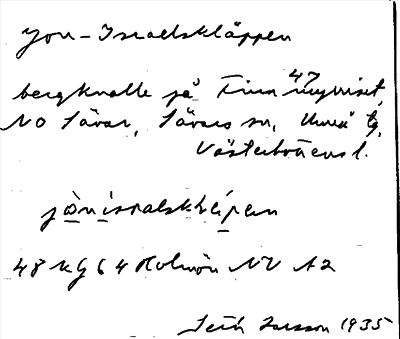 Jon-Israelskläppen
bergknalle på Finn myriset,
47
NO Sävar, Sävars sn, Umeå tg,
Västerbottens l.
jònisralskläpen
48 KG 64 Holmön NV A2
Seth Larsson 1935